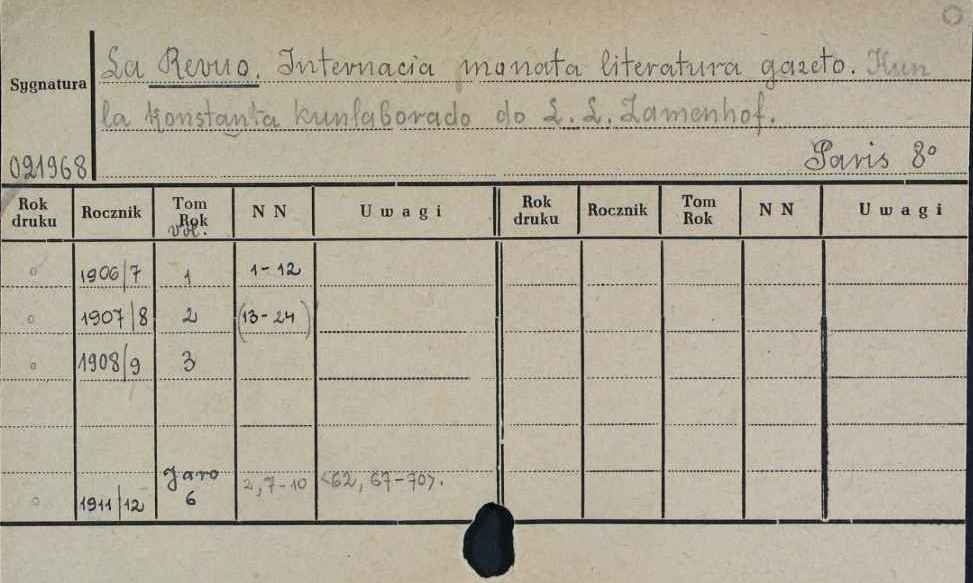 La Revuo. Internacia monata literatura gazeto. Kun
la konstanta kunlaborado do L. L. Zamenhof.
Sygnatura
021968
Paris 8°
Rok druku Rocznik Tom Rok vol. N N Uwagi Rok druku Rocznik Tom Rok N N Uwagi
° 1906/7 1 1-12
° 1907/8 2 (13-24)
° 1908/9 3
° 1911/12 Jaro 6 2,7-10 <62, 67-70>.